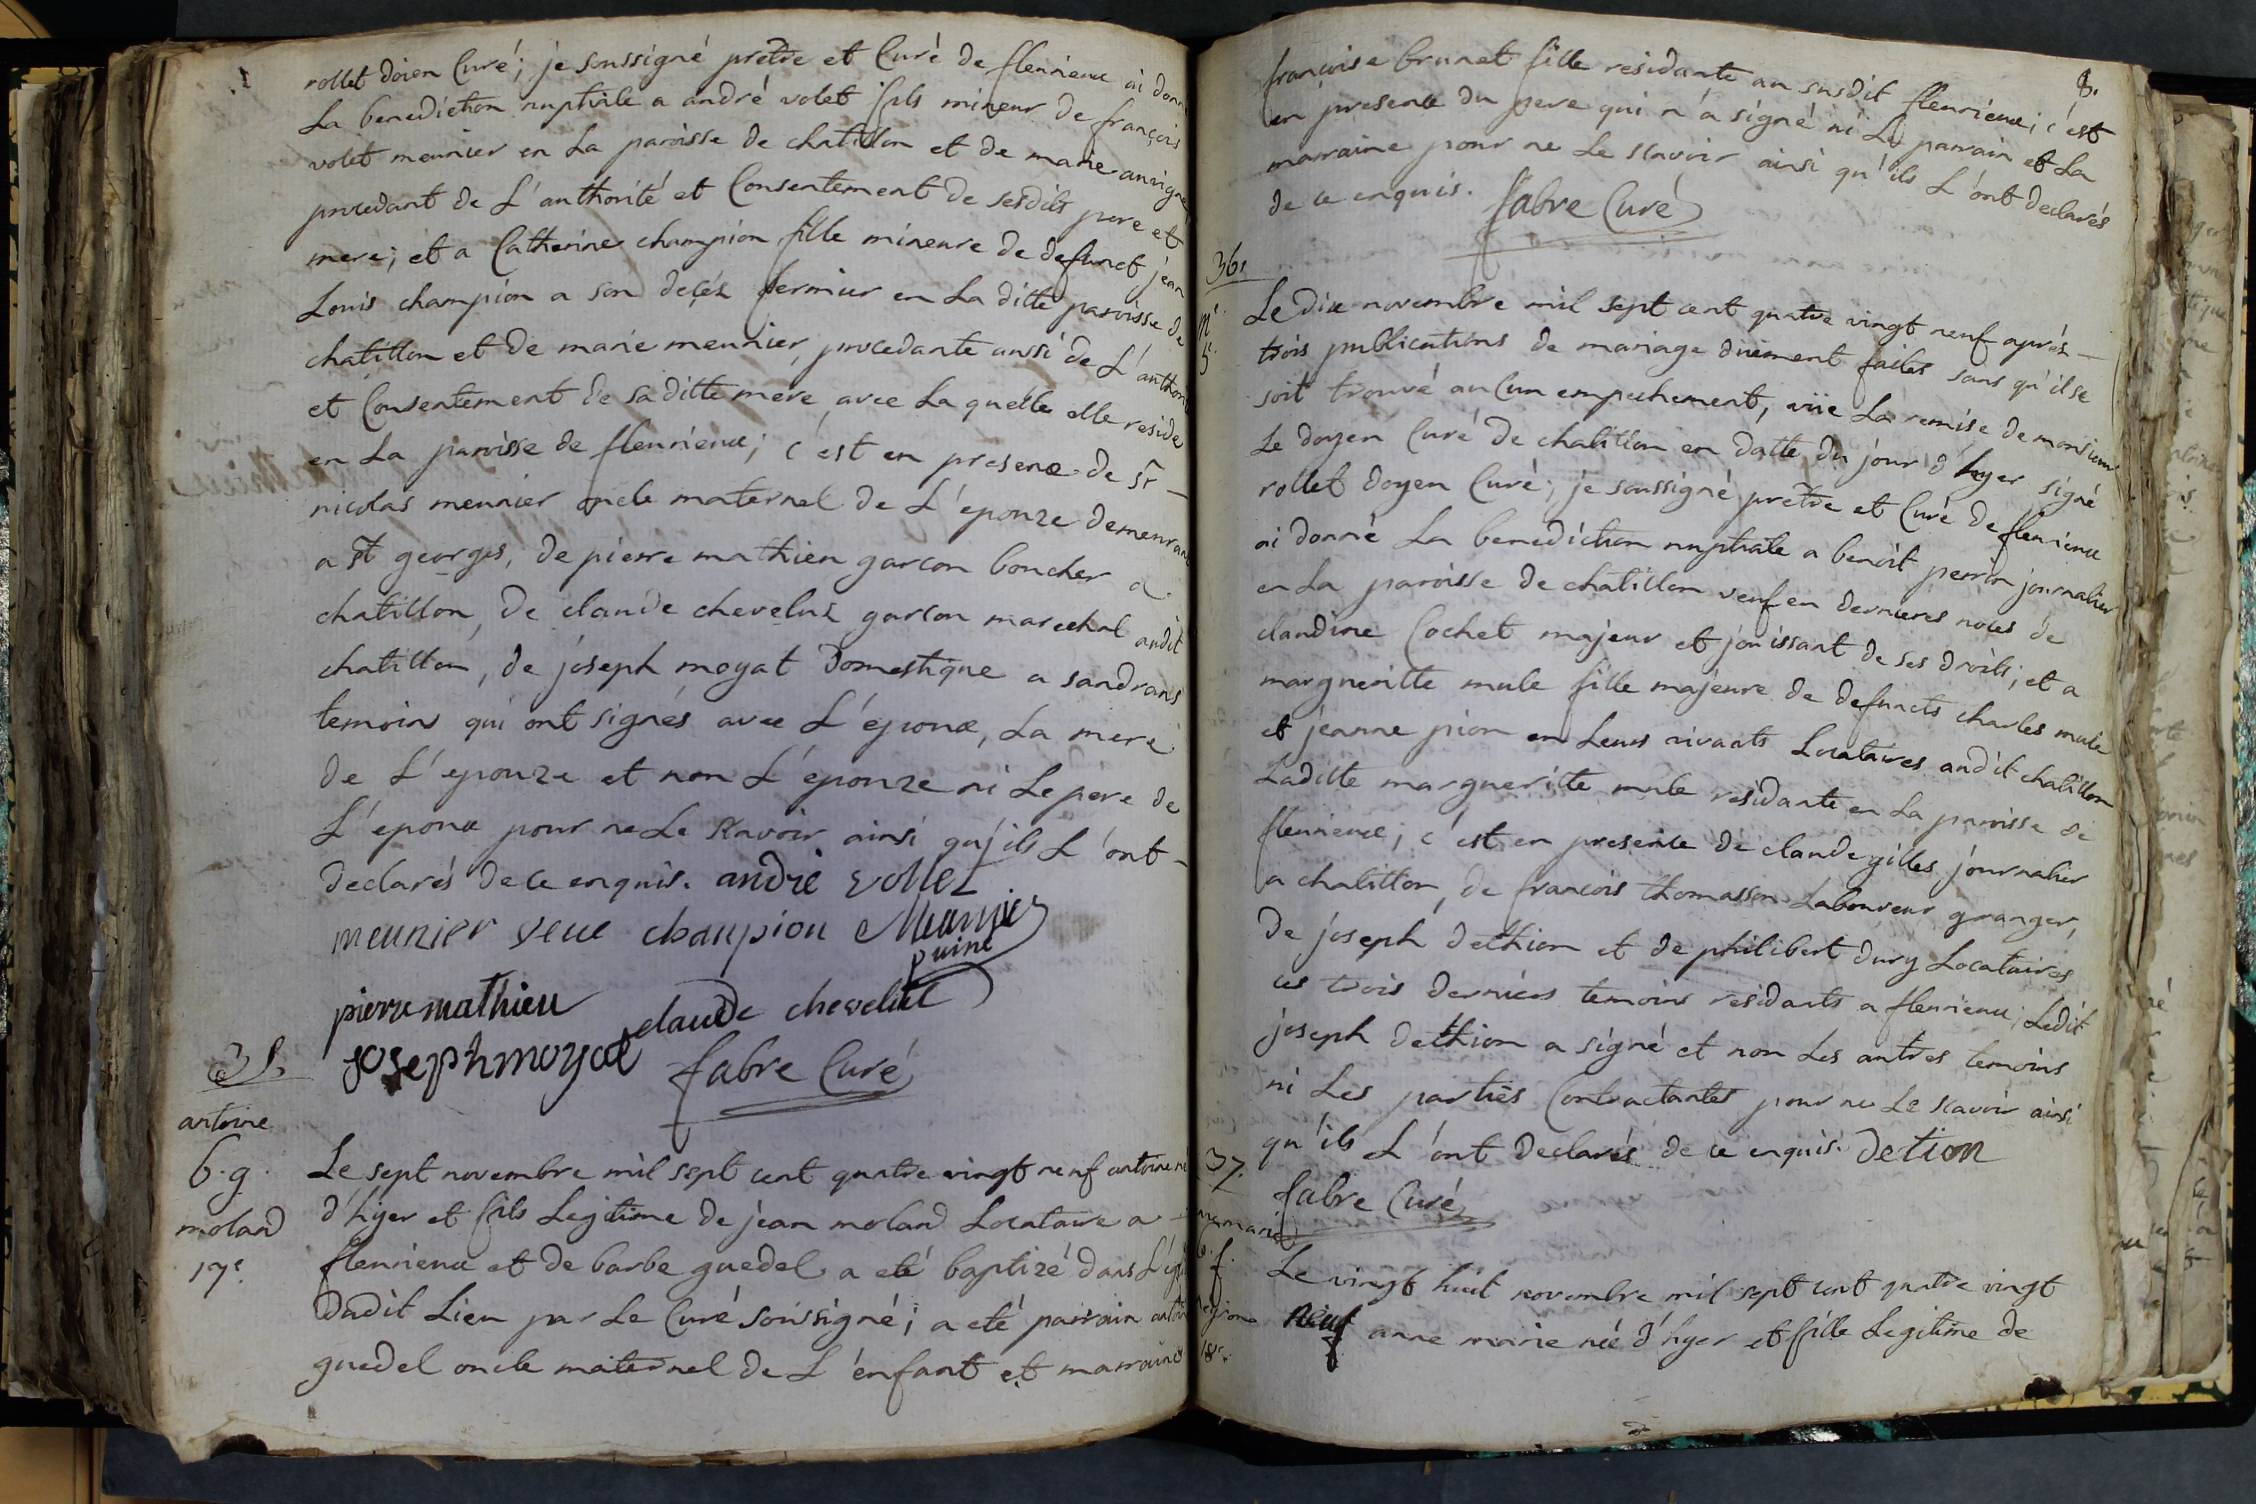 rollet doien Curé; je soussigné prêtre et Curé de fleurieux ai donn
La benediction nuptiale a andré volet fils mineur de françois
volet meunier en La paroisse de chatillon et de marie
procedant de L'authorité et Consentement de sesdits pere et
mere; et a Catherine champion fille mineure de defunct jean
Louis champion a son deçés fermier en La ditte paroisse de
chatillon et de marie meunier, procedante aussi de L'authori
et Consentement de sa ditte mere avec La quelle elle reside
en La paroisse de fleurieux; c'est en presence de sr
nicolas meunier oncle maternel de L'epouze demeurant
a st georges, de pierre mathieu garcon boucher a
chatillon, de claude chevelut garcon marechal audit
chatillon, de joseph moyat Domestique a sandrans
temoins qui ont signés avec L'époux, La mere
de L'epouze et non L'épouze ni Le pere de
L'epoux pour ne Le scavoir ainsi qu'ils L'ont
declarés de ce enquis. andré vollet
meunier veue champion Meunier
puiné
pierre mathieu claude chevelut
joseph moyat fabre Curé
35.
antoine
b.g.
moland
17e.
Le sept novembre mil sept cent quatre vingt neuf antoine né
d'hyer et fils Legitime de jean moland Locataire a
fleurieux et de barbe guedel a eté baptizé dans L'égl
dudit Lieu par Le Curé soussigné; a eté parrain antoi
guedel oncle maternel de L'enfant et marraine
8.
françoise brunet fille residante au susdit fleurieux; c'est
en presence du pere qui n'a signé ni Le parrain et La
marraine pour ne Le scavoir ainsi qu'ils L'ont declarés
de ce enquis. fabre Curé
36.
m.
5.
Le dix novembre mil sept cent quatre vingt neuf après
trois publications de mariage düement faites sans qu'il se
soit trouvé auCun empechement, vüe La remise de monsieur
Le doyen Curé de chatillon en datte du jour d'hyer signé
rollet doyen Curé; je soussigné prêtre et Curé de fleurieux
ai donné La benediction nuptiale a benoit perrin journalier
en La paroisse de chatillon veuf en dernieres noces de
claudine Cochet majeur et jouissant de ses droits; et a
margueritte mule fille majeure de defuncts charles mule
et jeanne pion en Leurs vivants Locataires audit chatillon
Laditte margueritte mule residante en La paroisse de
fleurieux; c'est en presence de claude gilles journalier
a chatillon, de francois thomasson Laboureur granger,
de joseph dethion et de philibert dury Locataires
ces trois derniers temoins residants a fleurieux; Ledit
joseph dethion a signé et non Les autres temoins
ni Les parties Contractantes pour ne Le scavoir ainsi
qu'ils L'ont declarés de ce enquis. detion
fabre Curé
37.
marie
b.f.
18e.
Le vingt huit novembre mil sept cent quatre vingt
neuf anne marie née d'hyer et fille Legitime de